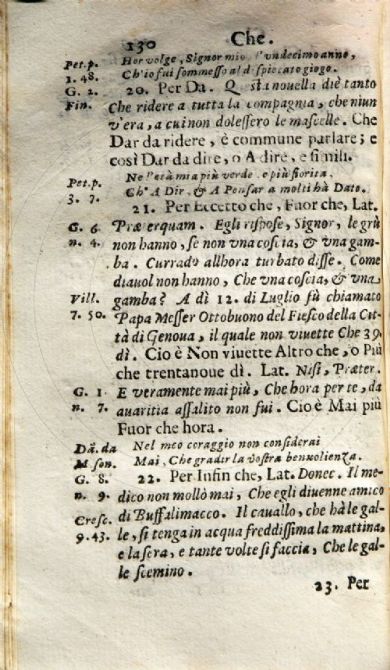 130 Che.
Pet. p. Hor volge, Signor mio, l'vndecimo anno,
1. 48. Ch'io fui sommesso al dispietato giogo.
G. 2. 20. Per Da. Questa nouella diè tanto
Fin. Che ridere a tutta la compagnia, che niun
v'era, a cui non dolessero le mascelle. Che
Dar da ridere, è commune parlare; e
così Dar da dire, o A dire, e simili.
Pet. p. Ne l'età mia più verde e più fiorita.
3. 7. Ch'A Dir, & A Pensar a molti hà Dato.
21. Per Eccetto che, Fuor che, Lat.
G. 6. Præterquam. Egli rispose, Signor, le grù
n. 4. non hanno, se non vna coscia, & vna gam-
ba. Currado allhora turbato disse. Come
diauol non hanno, Che vna coscia, & vna
Vill. gamba? A dì 12. di Luglio fù chiamato
7. 50. Papa Messer Ottobuono del Fiesco della Cit-
tà di Genoua, il quale non viuette Che 39.
dì. Cioè Non viuette Altro che, o Più
che trentanoue dì. Lat. Nisi, Præter.
G. 1. E veramente mai più, Che hora per te, da
n. 7. auaritia assalito non fui. Cioè Mai più
Fuor che hora.
Dã. da Nel meo coraggio non considerai
M son. Mai, Che gradir la vostra benuolienza.
G. 8. 22. Per Infin che, Lat. Donec. Il me-
n. 9. dico non mollò mai, Che egli diuenne amico
Cresc. di Buffalimacco. Il cauallo, che hà le gal-
9. 43. le, si tenga in acqua freddissima la mattina,
e la sera, e tante volte si faccia, Che le gal-
le scemino.
23. Per